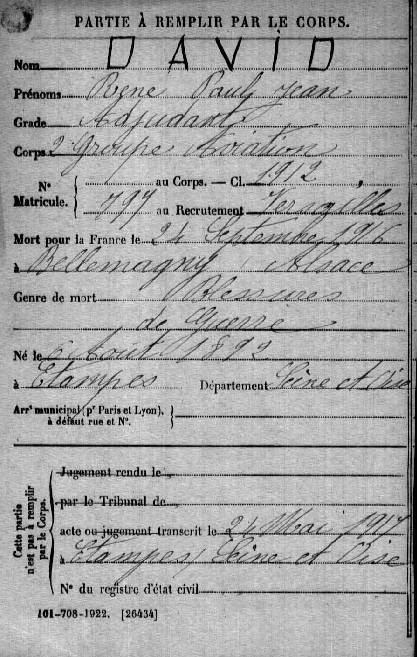 PARTIE À REMPLIR PAR LE CORPS.
Nom DAVID
Prénoms René Paul Jean
Grade Adjudant
Corps 2e Groupe Aviation
au Corps. — Cl. 1912
Nº Matricule. 797 au Recrutement Versailles
Mort pour la France le 24 Septembre 1916
à Bellemagny Alsace
Genre de mort Blessures
de Guerre
Né le Août 1892
à Etampes Département Seine et Oise
Arrt municipal (pr Paris et Lyon),
à défaut rue et Nº.
Cette partie n'est pas à remplir par le Corps.
Jugement rendu le
par le Tribunal de
acte ou jugement transcrit le 24 Mai 1917
à Etampes Seine et Oise
Nº du registre d'état civil
101-708-1922. [26434]